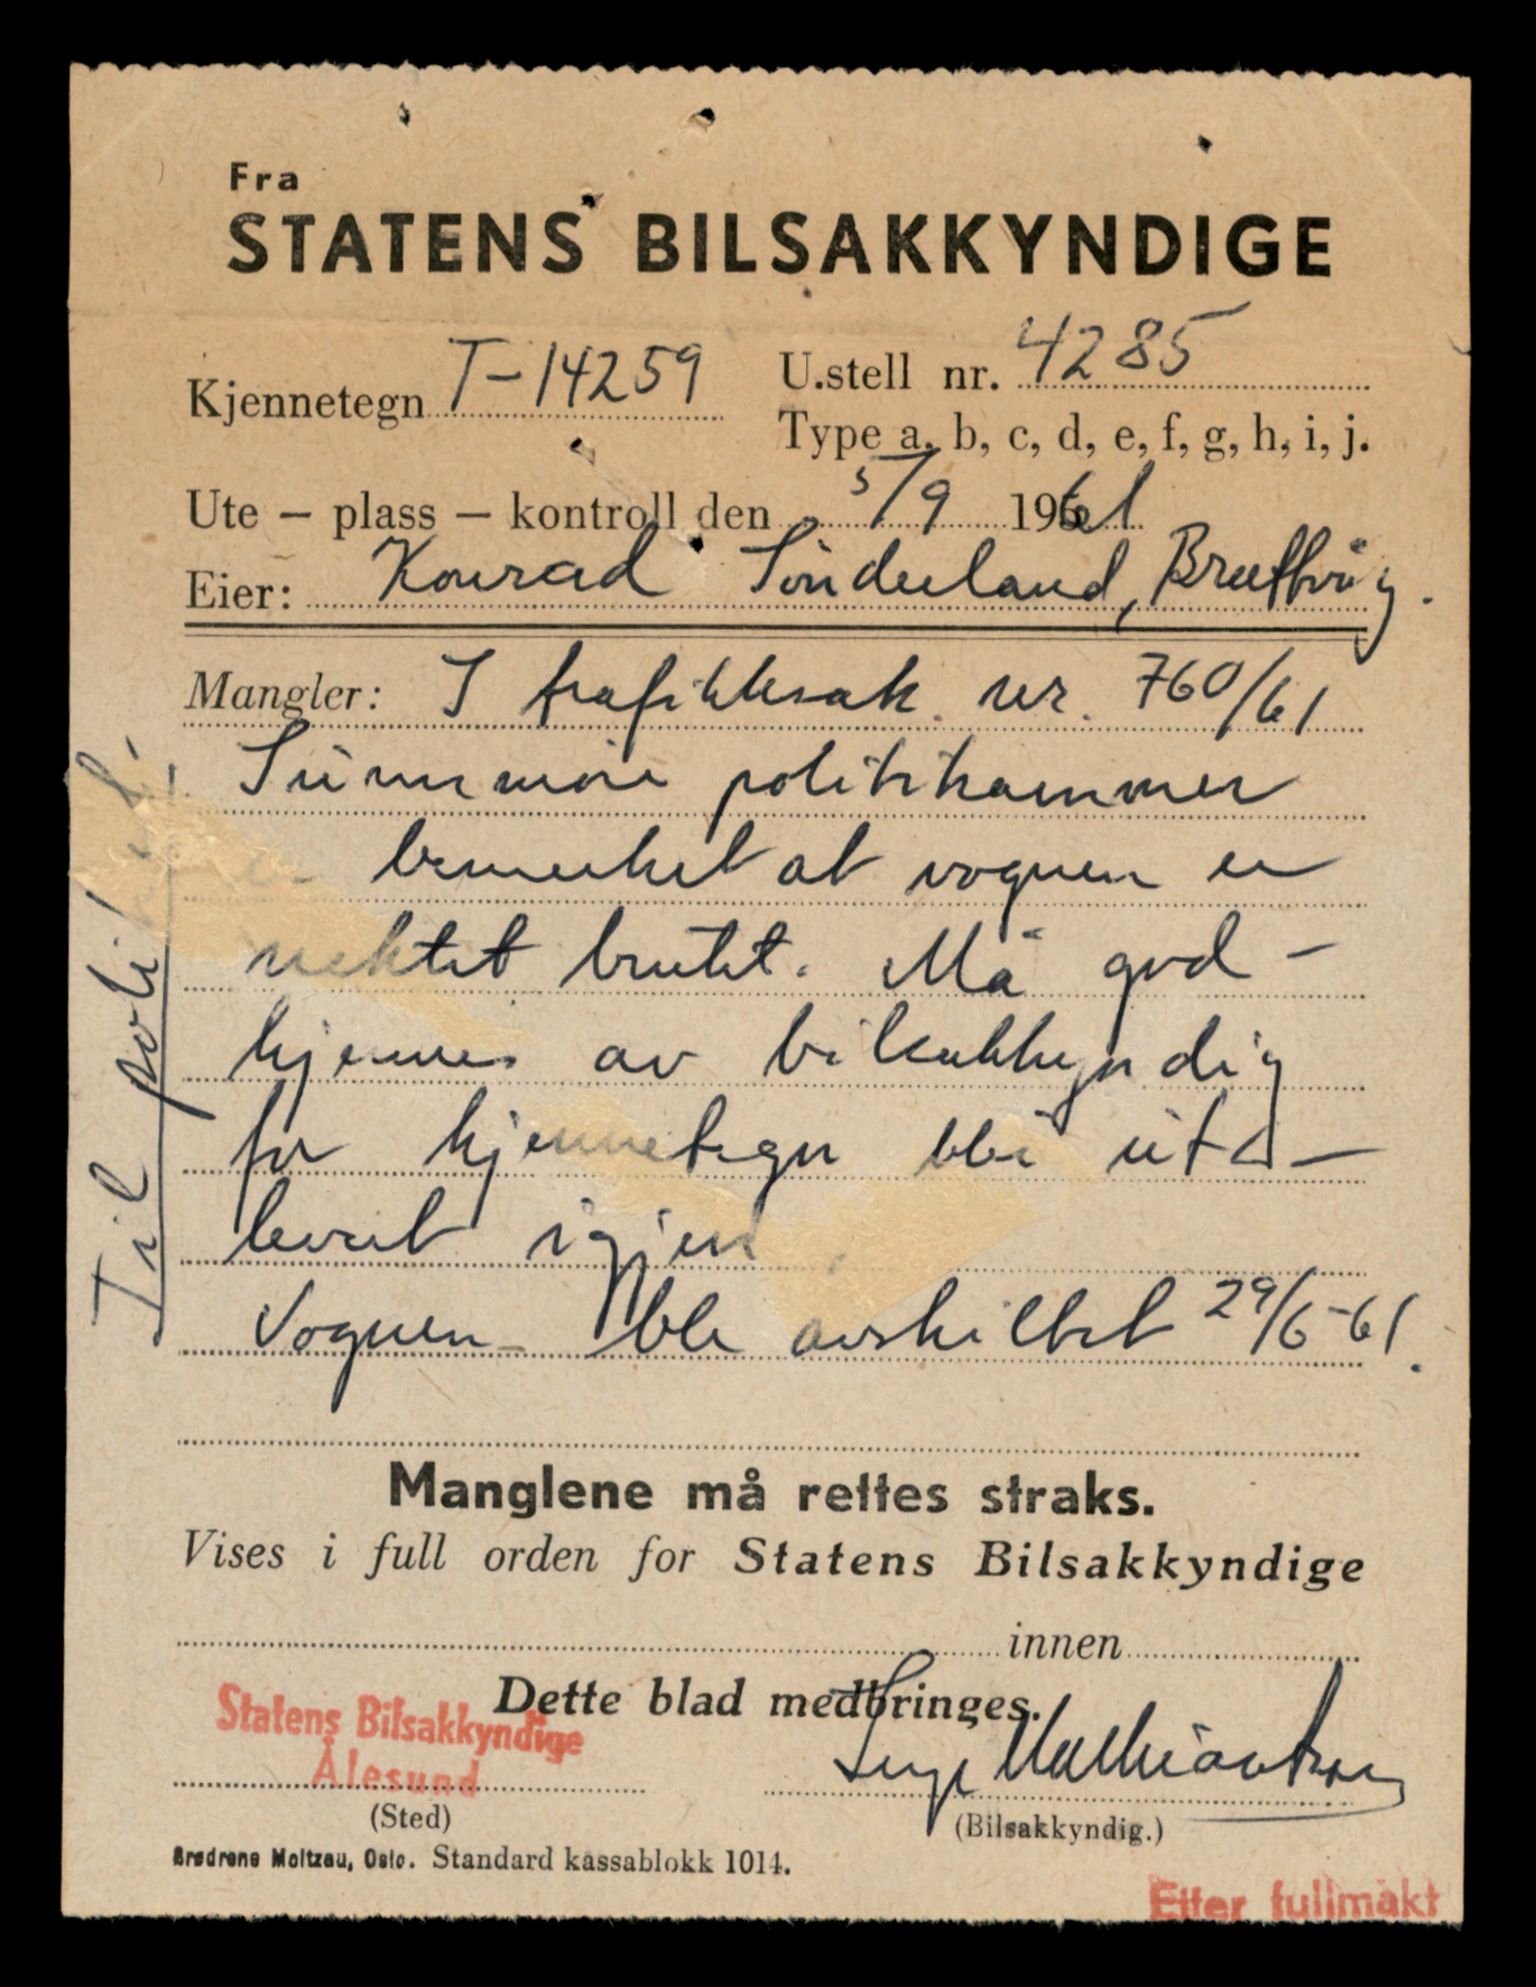 Fra
STATENS BILSAKKYNDIGE
Kjennetegn T-14259
U.stell nr. 4285
Type a, b, c, d, e, f, g, h, i, j.
Ute — plass — kontroll den 5/9 1961
Eier: Konrad Sönderland, Brattvåg.
Mangler: I trafikksak nr. 760/61
Sunnmøre politikammer
er bemerket at vognen er
nektet brukt. Må god-
kjennes av bilsakkyndig
før kjennetegn bli ut-
levert igjen.
Vognen ble avskiltet 29/6-61.
Til politiet.
Manglene må rettes straks.
Vises i full orden for Statens Bilsakkyndige
innen
Dette blad medbringes.
Statens Bilsakkyndige
Ålesund
(Sted)
Inge
(Bilsakkyndig.)
Brødrene Moltzau, Oslo. Standard kassablokk 1014.
Etter fullmakt